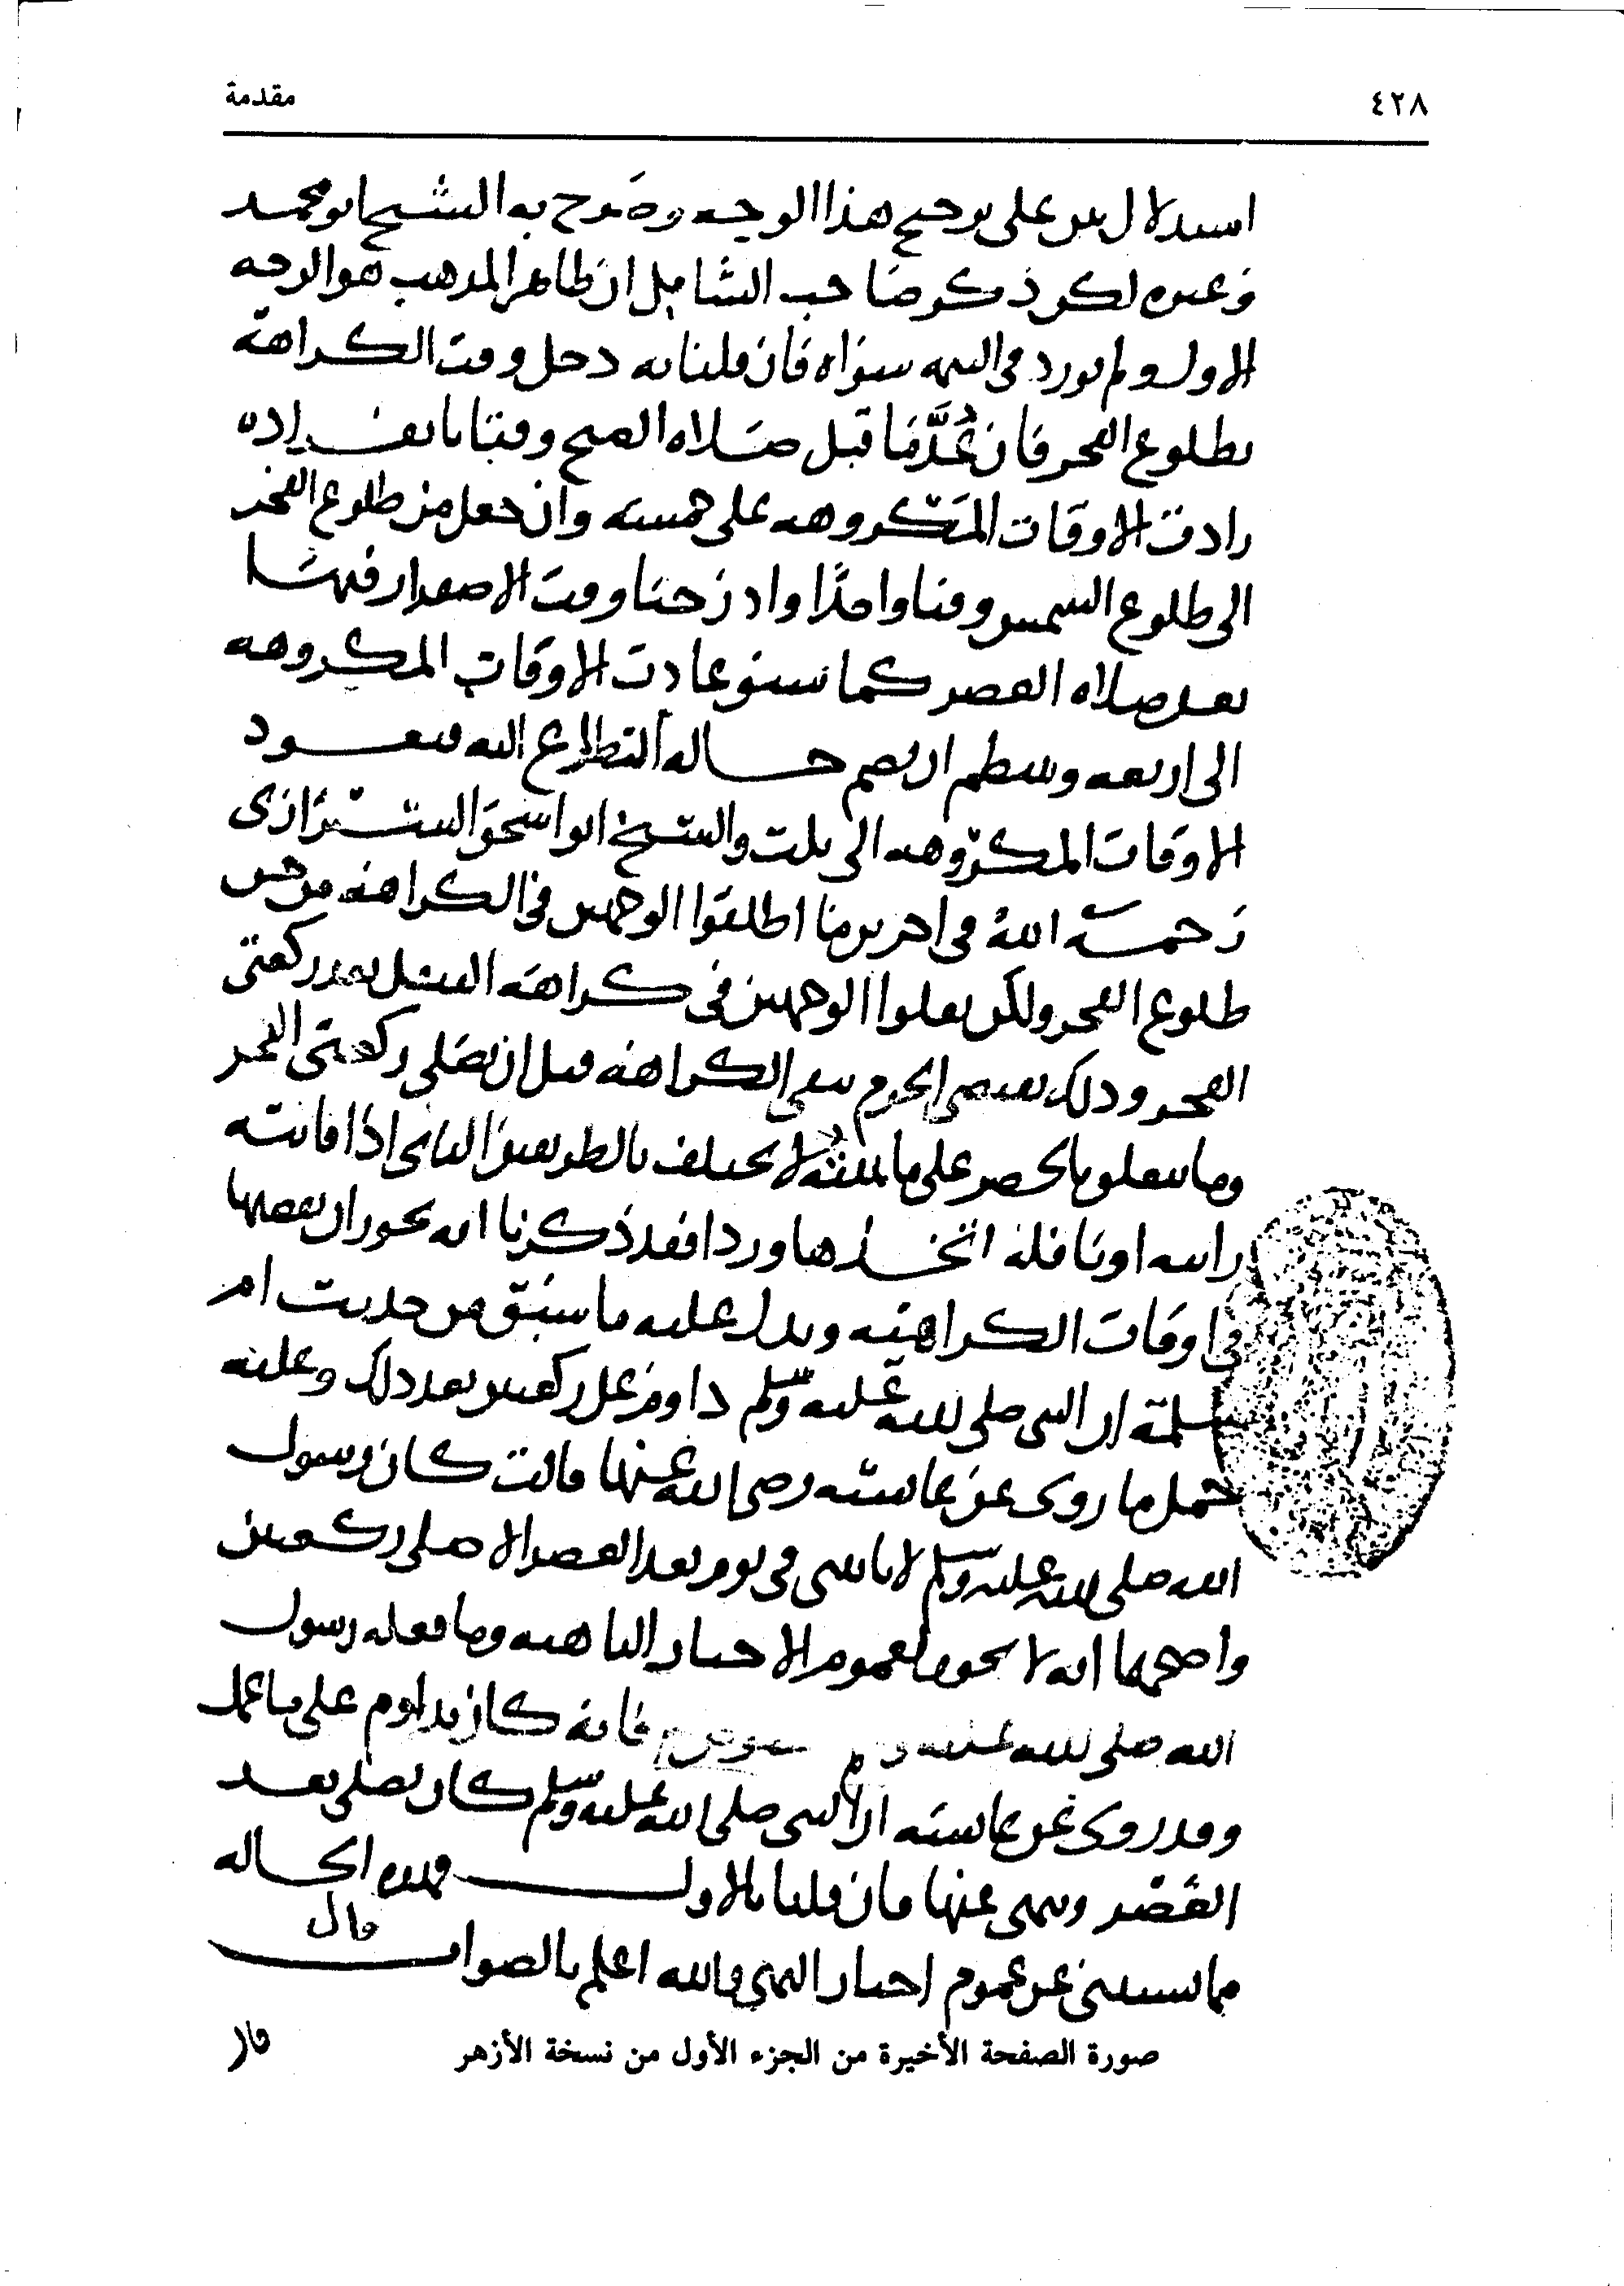 مقدمة
٤٢٨
استدلال بين على ترجيح هذا الوجه وصرح به الشيخ ابو محمد
وغيره لكن ذكر صاحب الشامل ان ظاهر المذهب هو الوجه
الاول ولم يورد في التتمه سواه فان قلنا به دخل وقت الكراهة
بطلوع الفجر فان عُدَّ مَا قبل صَلاه الصبح وقتا بانفراده
زادت الاوقات المكروهه على خمسه وان جعل من طلوع الفجر
الى طلوع الشمس وقتا واحدًا وادرجنا وقت الاصفرار فيما
بعد صلاه العصر كما سبق عادت الاوقات المكروهه
الى اربعه وينتظم ان يضم حاله الطلوع اليه فيعود
الاوقات المكروهه الى ثلث والشيخ ابو اسحق الشيرازي
رَحمه اللهُ في اخرين ما اطلقوا الوجهين في الكراهه من حين
طلوع الفجر ولكن نقلوا الوجهين في كراهة التنفل بعد ركعتي
الفجر وذلك يقتضي الجزم بنفي الكراهه قبل ان يصلي ركعتي الفجر
وما يتعلق بالحصر على ما لا يختلف بالطريقين الثاني اذا فاتته
راتبه او نافلة اتخذها وردا فقد ذكرنا انه يجوز ان يقضيها
في اوقات الكراهيه ويدل عليه ما سبق من حديث ام
سلمة ان النبي صلى الله عليه وسلم داوم على ركعتين بعد ذلك وعليه
حمل ما روى عن عائشه رضي الله عنها قالت كان رسول
الله صلى الله عليه وسلم لا ياتيني في يوم بعد العصر الا صلى ركعتين
واصحهما انه لا يجوز لعموم الاخبار الناهيه وما فعله رسول
الله صلى الله عليه وسلم فانه كان يداوم على ما عمل
وقد روى عن عائشه ان النبي صلى الله عليه وسلم كان يصلي بعد
العَصْر وينهى عنها فان قلنا بالاول فهذه الحاله
مما يستثنى عن عموم اخبار النهي والله اعلم بالصواب
قال
صورة الصفحة الأخيرة من الجزء الأول من نسخة الأزهر
قال